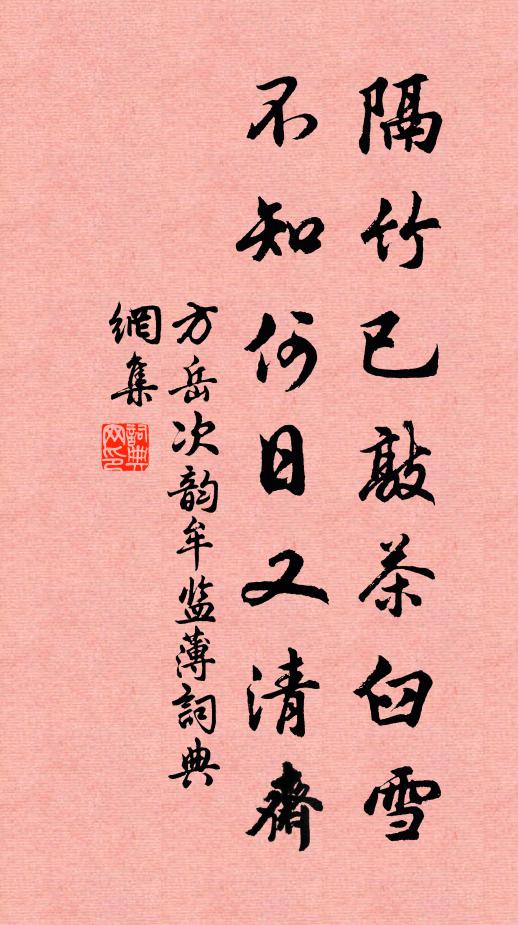 隔竹已敲茶臼雪
不知何日又清齋
方岳次韵牟监薄詞典
網集
詞典网印